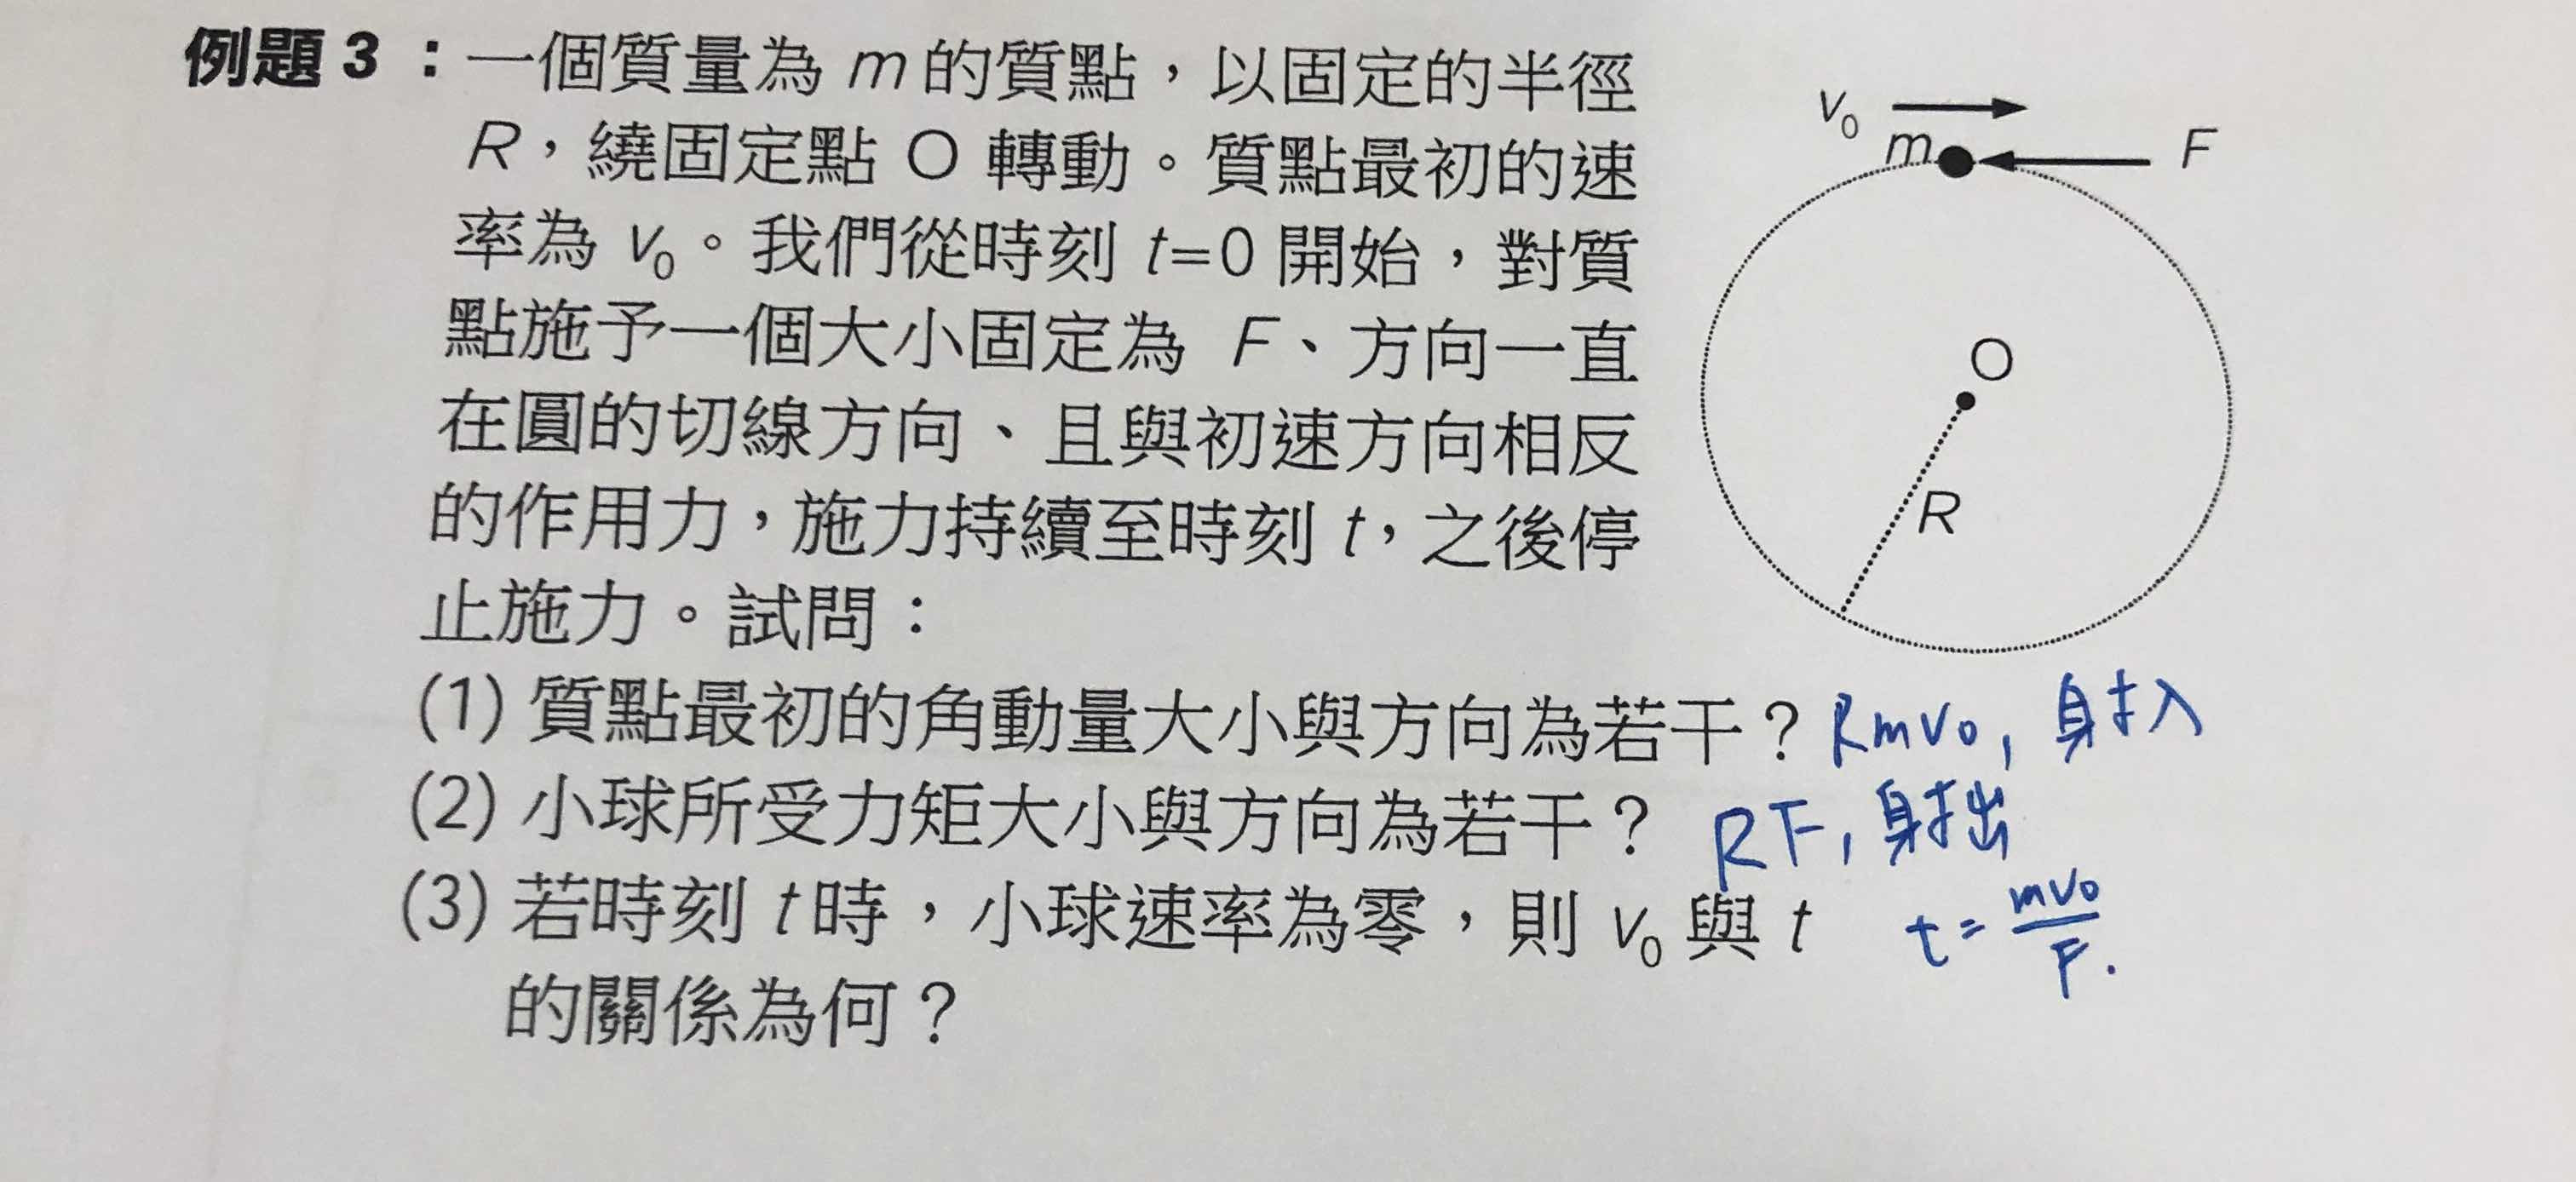 例題3：一個質量為 m 的質點，以固定的半徑
R，繞固定點 O 轉動。質點最初的速
率為 v₀。我們從時刻 t=0 開始，對質
點施予一個大小固定為 F、方向一直
在圓的切線方向、且與初速方向相反
的作用力，施力持續至時刻 t，之後停
止施力。試問：
(1) 質點最初的角動量大小與方向為若干？ Rmv₀, 射入
(2) 小球所受力矩大小與方向為若干？ RF, 射出
(3) 若時刻 t 時，小球速率為零，則 v₀ 與 t
的關係為何？
t = mv₀/F.
v₀
m
F
O
R